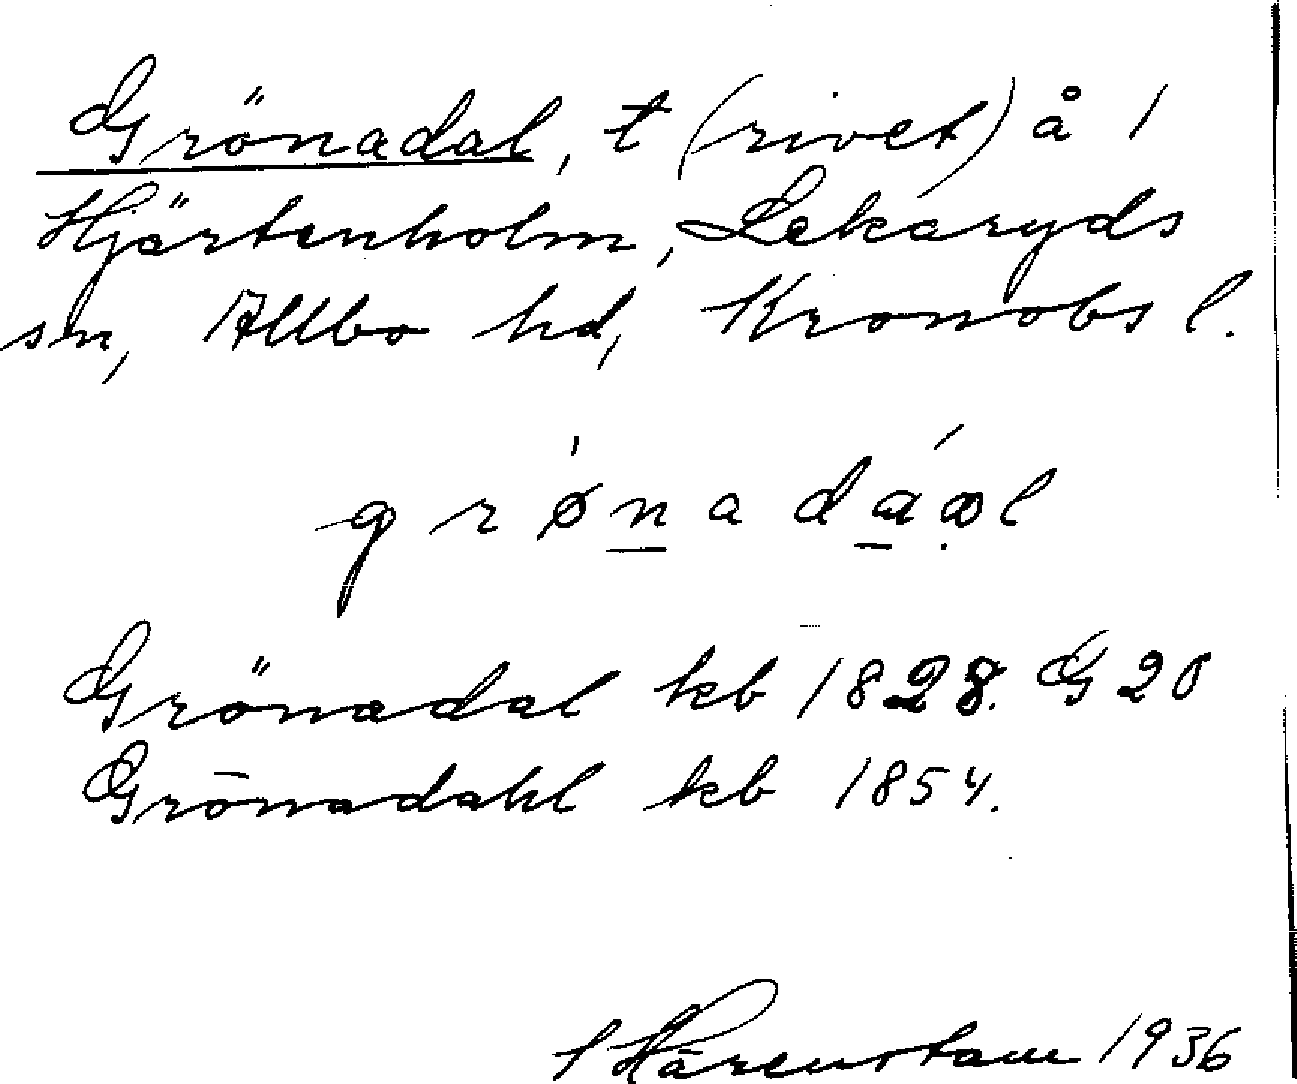 Grönadal, t (rivet) å 1
Hjärtenholm, Lekaryds
sn, Allbo hd, Kronobs l.
grø̀nadáal
Grönadal kb 1828. G 20
Grönadahl kb 1854.
Härenstam 1936